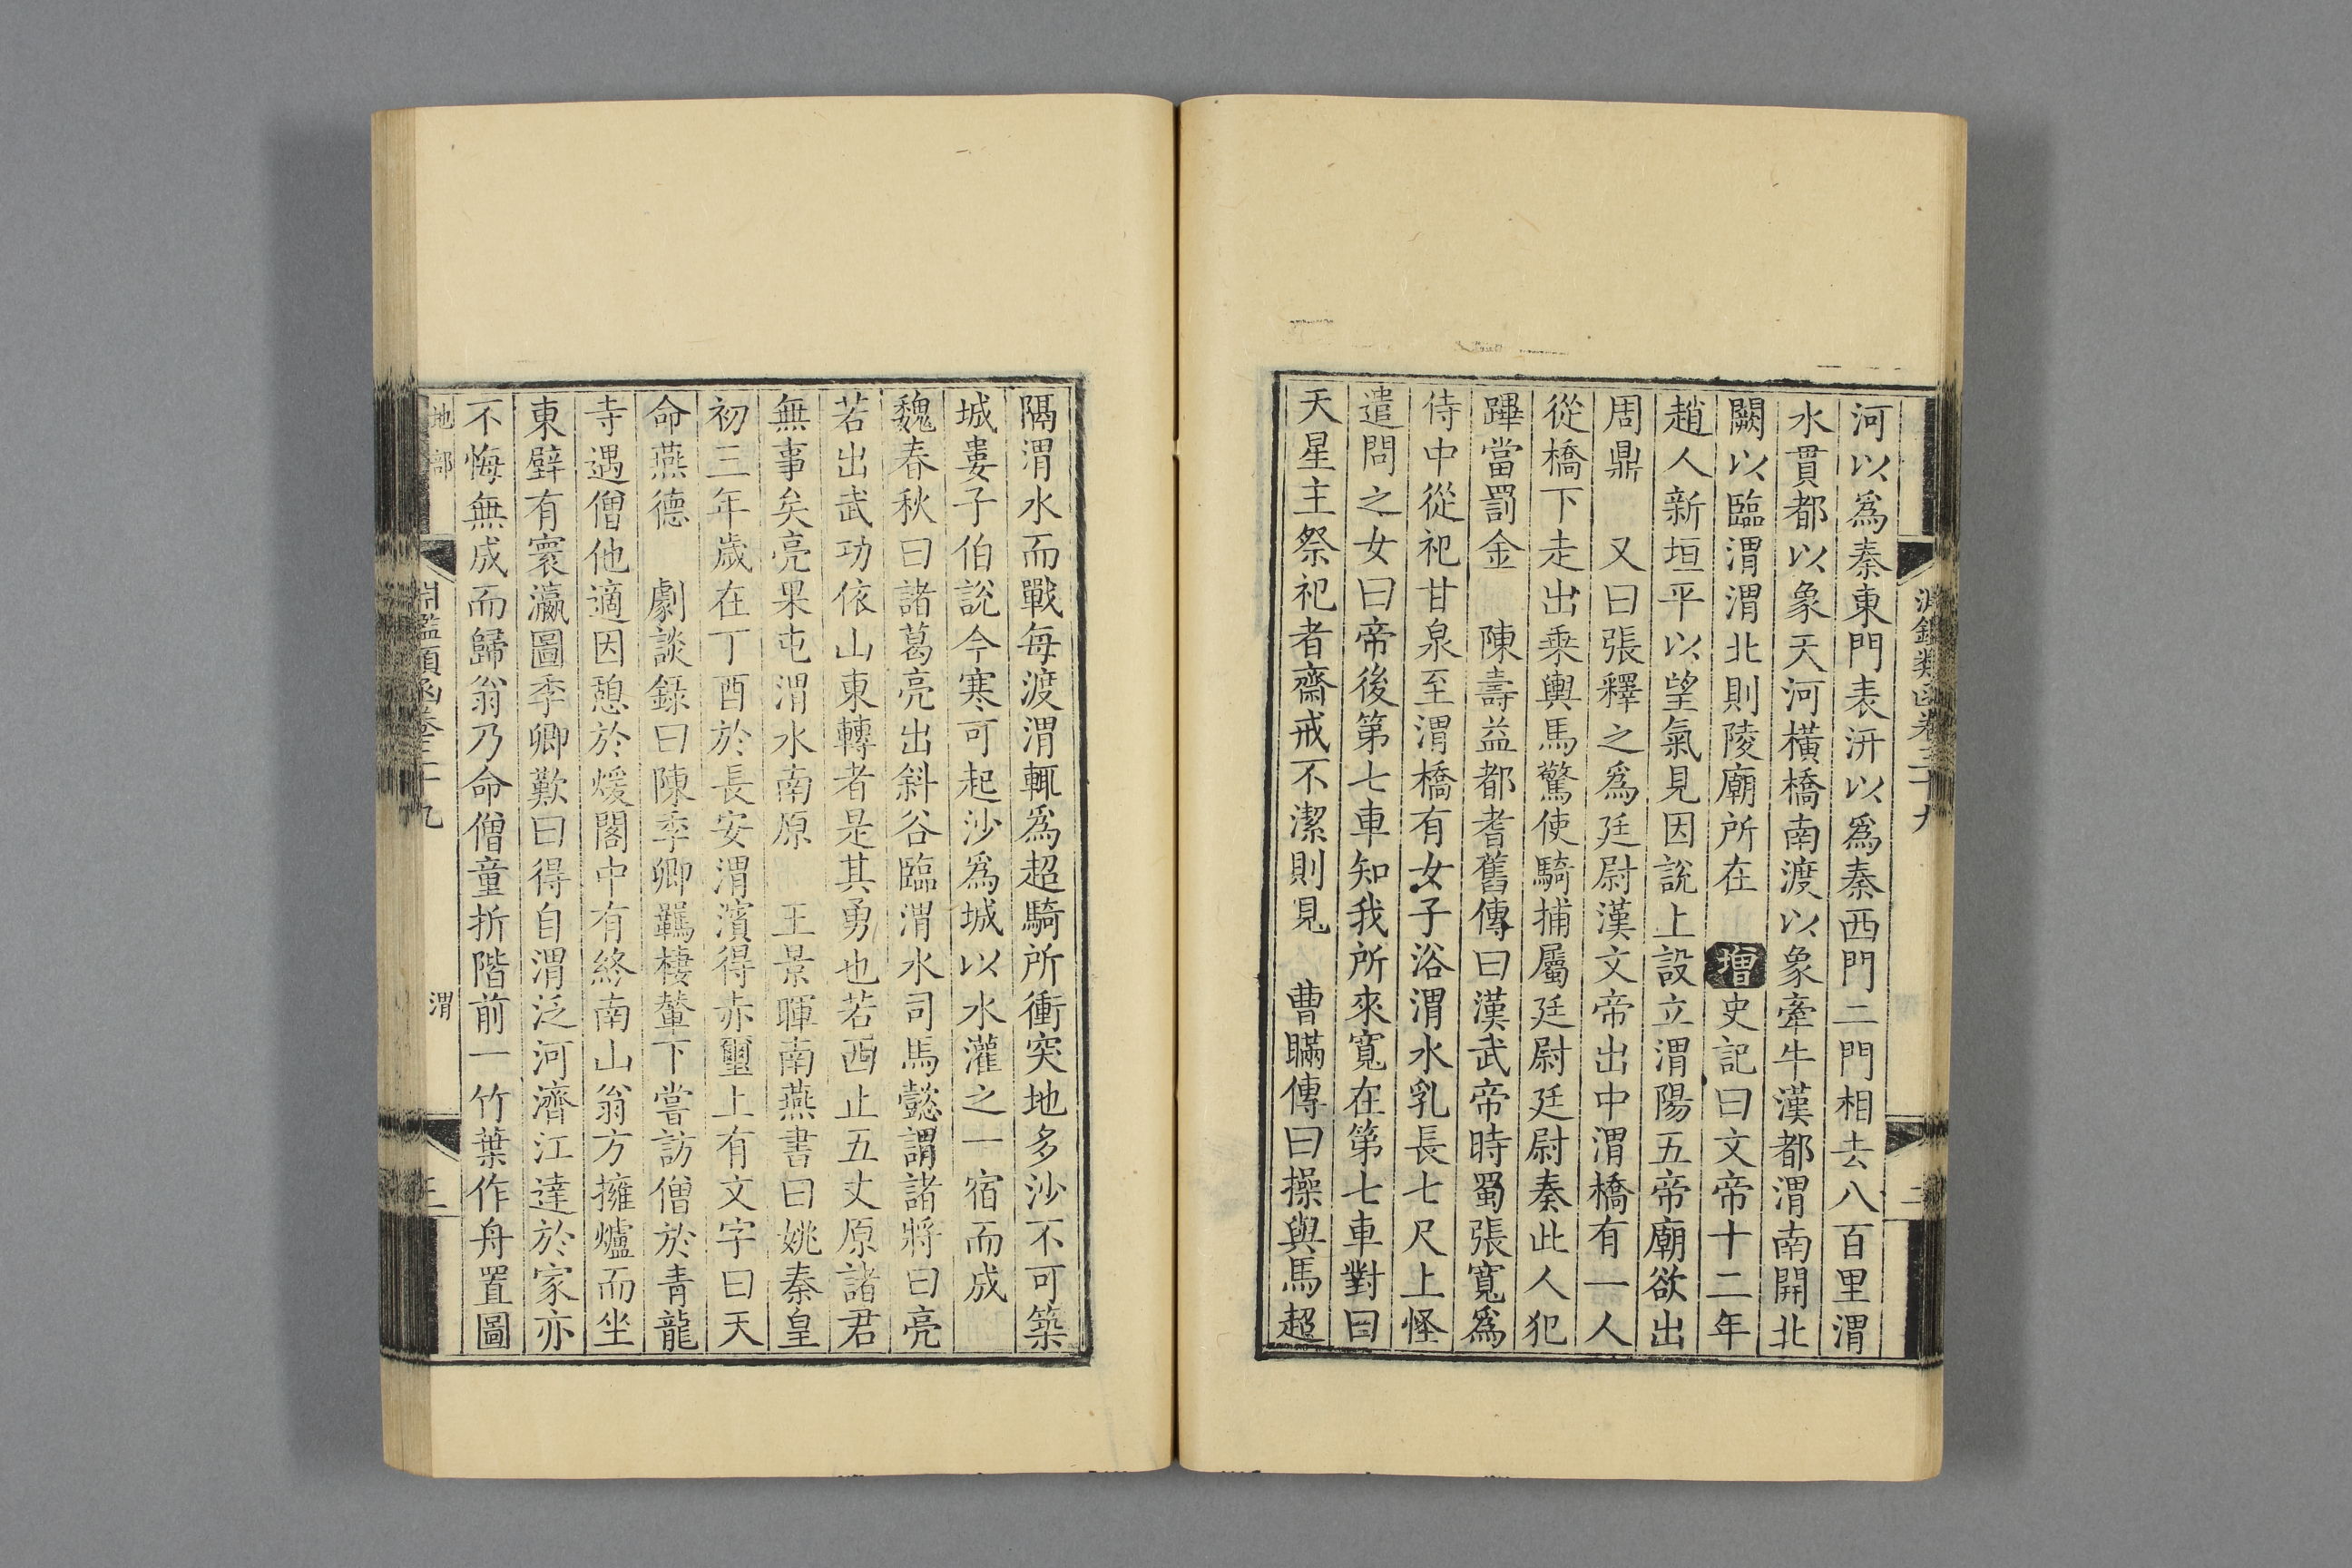 淵鑑類函卷三十九
二
河以爲秦東門表汧以爲秦西門二門相去八百里渭
水貫都以象天河橫橋南渡以象牽牛漢都渭南開北
闕以臨渭渭北則陵廟所在 增史記曰文帝十二年
趙人新垣平以望氣見因說上設立渭陽五帝廟欲出
周鼎 又曰張釋之爲廷尉漢文帝出中渭橋有一人
從橋下走出乘輿馬驚使騎捕屬廷尉廷尉奏此人犯
蹕當罰金 陳壽益都耆舊傳曰漢武帝時蜀張寬爲
侍中從祀甘泉至渭橋有女子浴渭水乳長七尺上怪
遣問之女曰帝後第七車知我所來寬在第七車對曰
天星主祭祀者齋戒不潔則見 曹瞞傳曰操與馬超
隔渭水而戰每渡渭輒爲超騎所衝突地多沙不可築
城婁子伯說今寒可起沙爲城以水灌之一宿而成
魏春秋曰諸葛亮出斜谷臨渭水司馬懿謂諸將曰亮
若出武功依山東轉者是其勇也若西止五丈原諸君
無事矣亮果屯渭水南原 王景暉南燕書曰姚秦皇
初三年歲在丁酉於長安渭濱得赤璽上有文字曰天
命燕德 劇談錄曰陳季卿羈棲輦下嘗訪僧於青龍
寺遇僧他適因憩於煖閣中有終南山翁方擁爐而坐
東壁有寰瀛圖季卿歎曰得自渭泛河濟江達於家亦
不悔無成而歸翁乃命僧童折階前一竹葉作舟置圖
地部
淵鑑類函卷三十九
渭
三